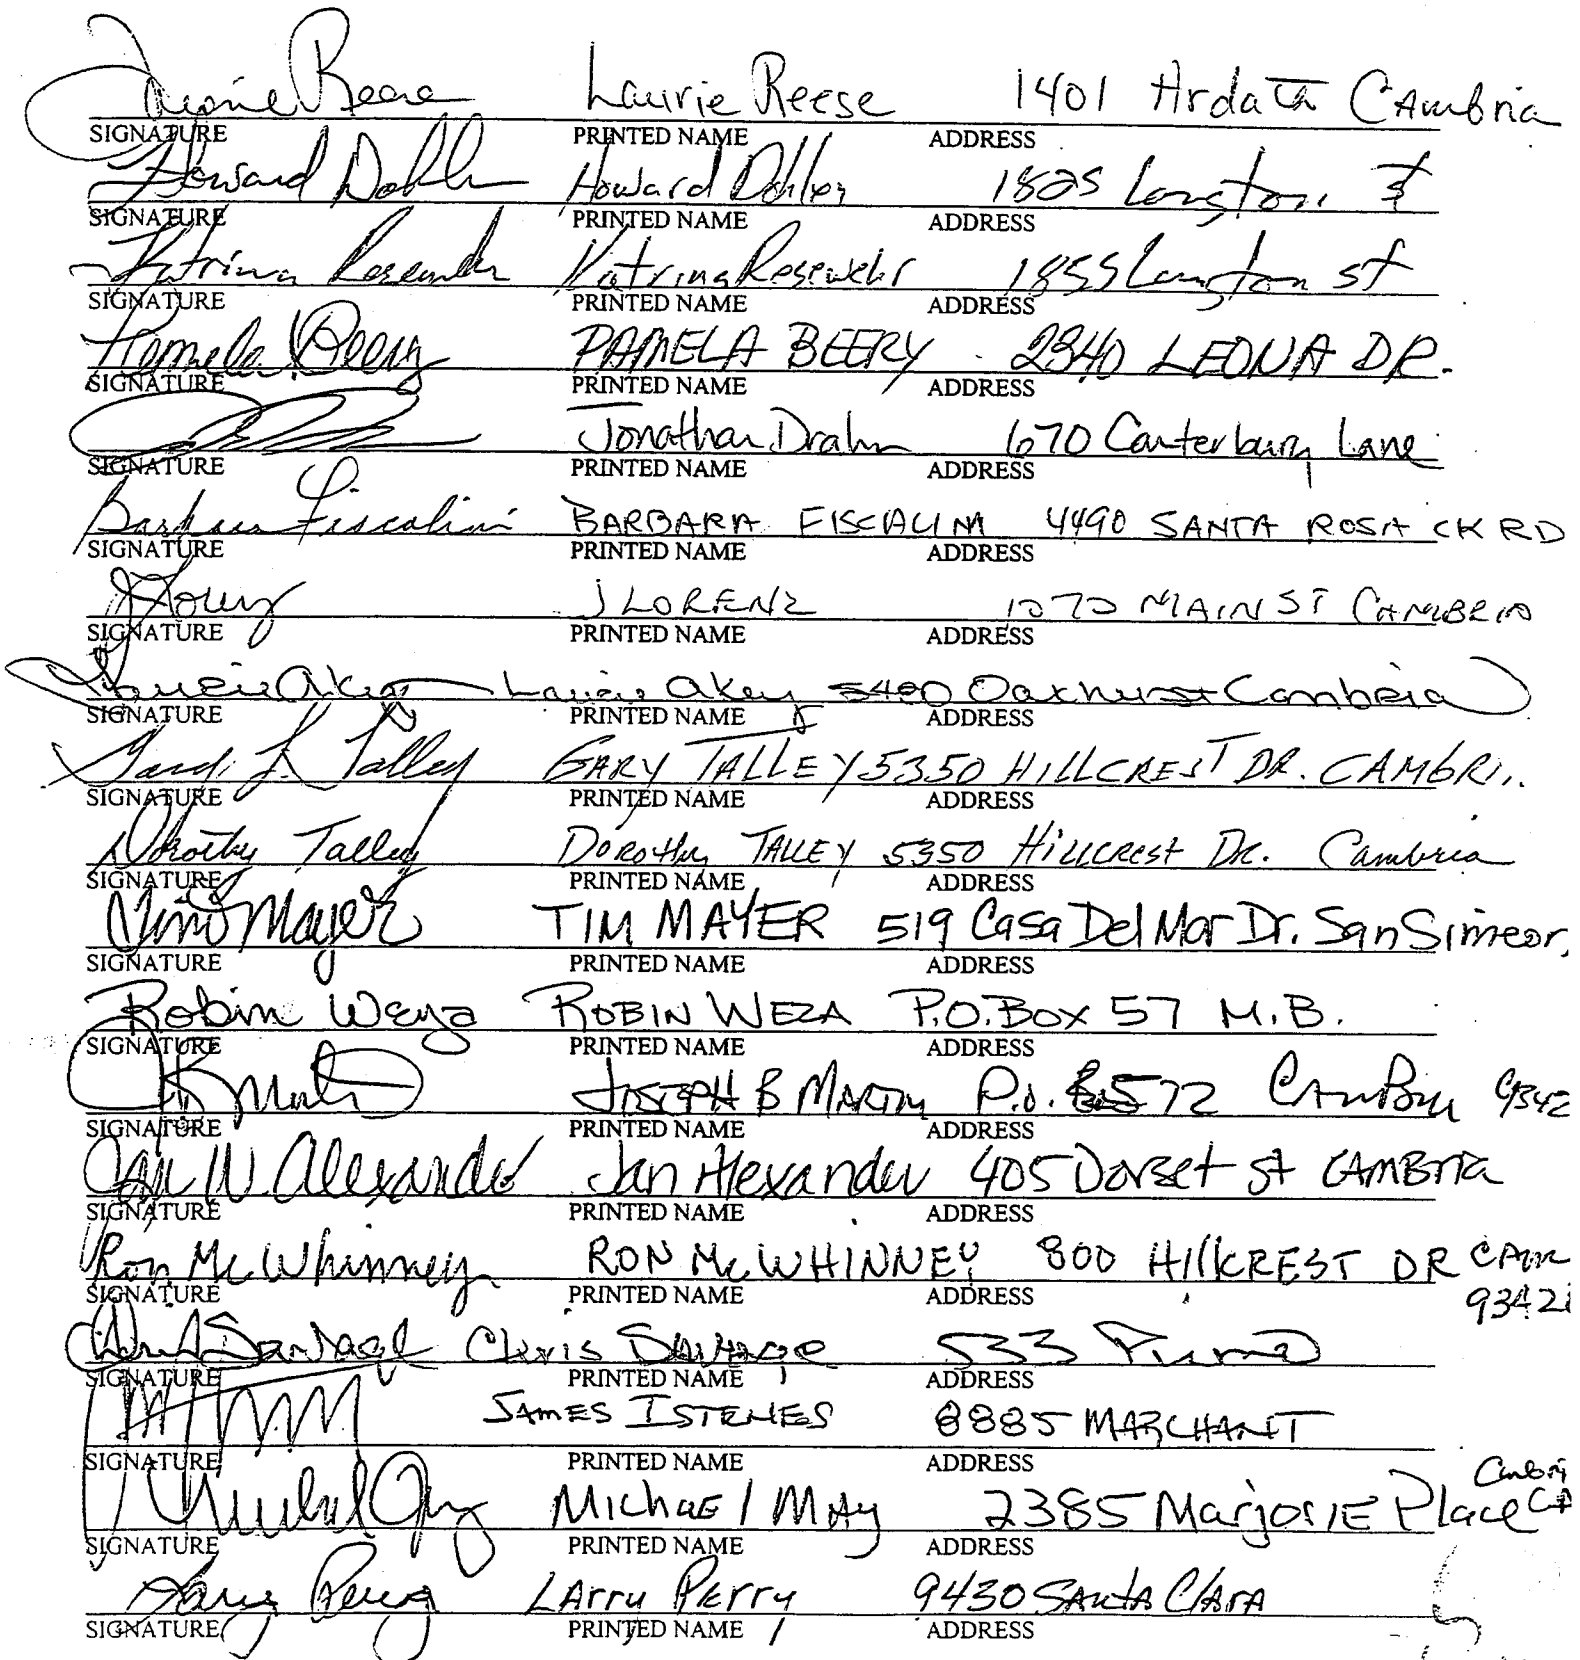 Laurie Reese Laurie Reese 1401 Ardath CAmbria
SIGNATURE PRINTED NAME ADDRESS
Howard Howard 1825 Langton St
SIGNATURE PRINTED NAME ADDRESS
Katrina Katrina 1855 Langton st
SIGNATURE PRINTED NAME ADDRESS
Pamela Beery PAMELA BEERY 2340 LEONA DR.
SIGNATURE PRINTED NAME ADDRESS
Jonathan Drahn 1670 Canterbury Lane
SIGNATURE PRINTED NAME ADDRESS
Barbara Fiscalini BARBARA FISCALINI 4490 SANTA ROSA CK RD
SIGNATURE PRINTED NAME ADDRESS
J LORENZ 1070 MAIN ST CAMBRIA
SIGNATURE PRINTED NAME ADDRESS
Laurie Akey Laurie Akey 5480 Oakhurst Cambria
SIGNATURE PRINTED NAME ADDRESS
Gary L. Talley GARY TALLEY 5350 HILLCREST DR. CAMBRI
SIGNATURE PRINTED NAME ADDRESS
Dorothy Talley DOROthy TALLEY 5350 HILLCREST DR. Cambria
SIGNATURE PRINTED NAME ADDRESS
Tim Mayer TIM MAYER 519 Casa Del Mar Dr. San Simeon,
SIGNATURE PRINTED NAME ADDRESS
Robin Weza ROBIN WEZA P.O. BOX 57 M.B.
SIGNATURE PRINTED NAME ADDRESS
JOSEPH B MARTIN P.O. Box 572 CAMBRIA 9342
SIGNATURE PRINTED NAME ADDRESS
Jan W. Alexander Jan Alexander 405 Dorset St CAMBRIA
SIGNATURE PRINTED NAME ADDRESS
Ron McWhinney RON McWHINNEY 800 HillCREST DR CAM
SIGNATURE PRINTED NAME ADDRESS 9342
Chris Savage Chris Savage 533
SIGNATURE PRINTED NAME ADDRESS
JAMES ISTENES 8885 MARCHANT
SIGNATURE PRINTED NAME ADDRESS
Michael May Michael MAy 2385 MarjorIE Place Cambria CA
SIGNATURE PRINTED NAME ADDRESS
Larry Perry LArry PErry 9430 SANTA ClArA
SIGNATURE PRINTED NAME ADDRESS